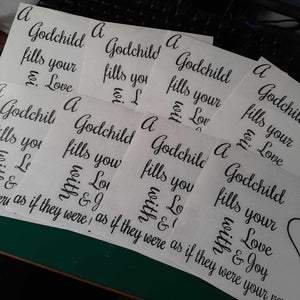 A
Godchild
fills your
wi Love
A
Godchild
fills your
wi Love
A
Godchild
fills your
wi Love
A
Godchild
fills your
Love
A
Godchild
fills your
with Love
& J
as if they were
A
Godchild
fills your
with Love
& Joy
as if they were
A
Godchild
fills your
with Love
& Joy
as if they were your